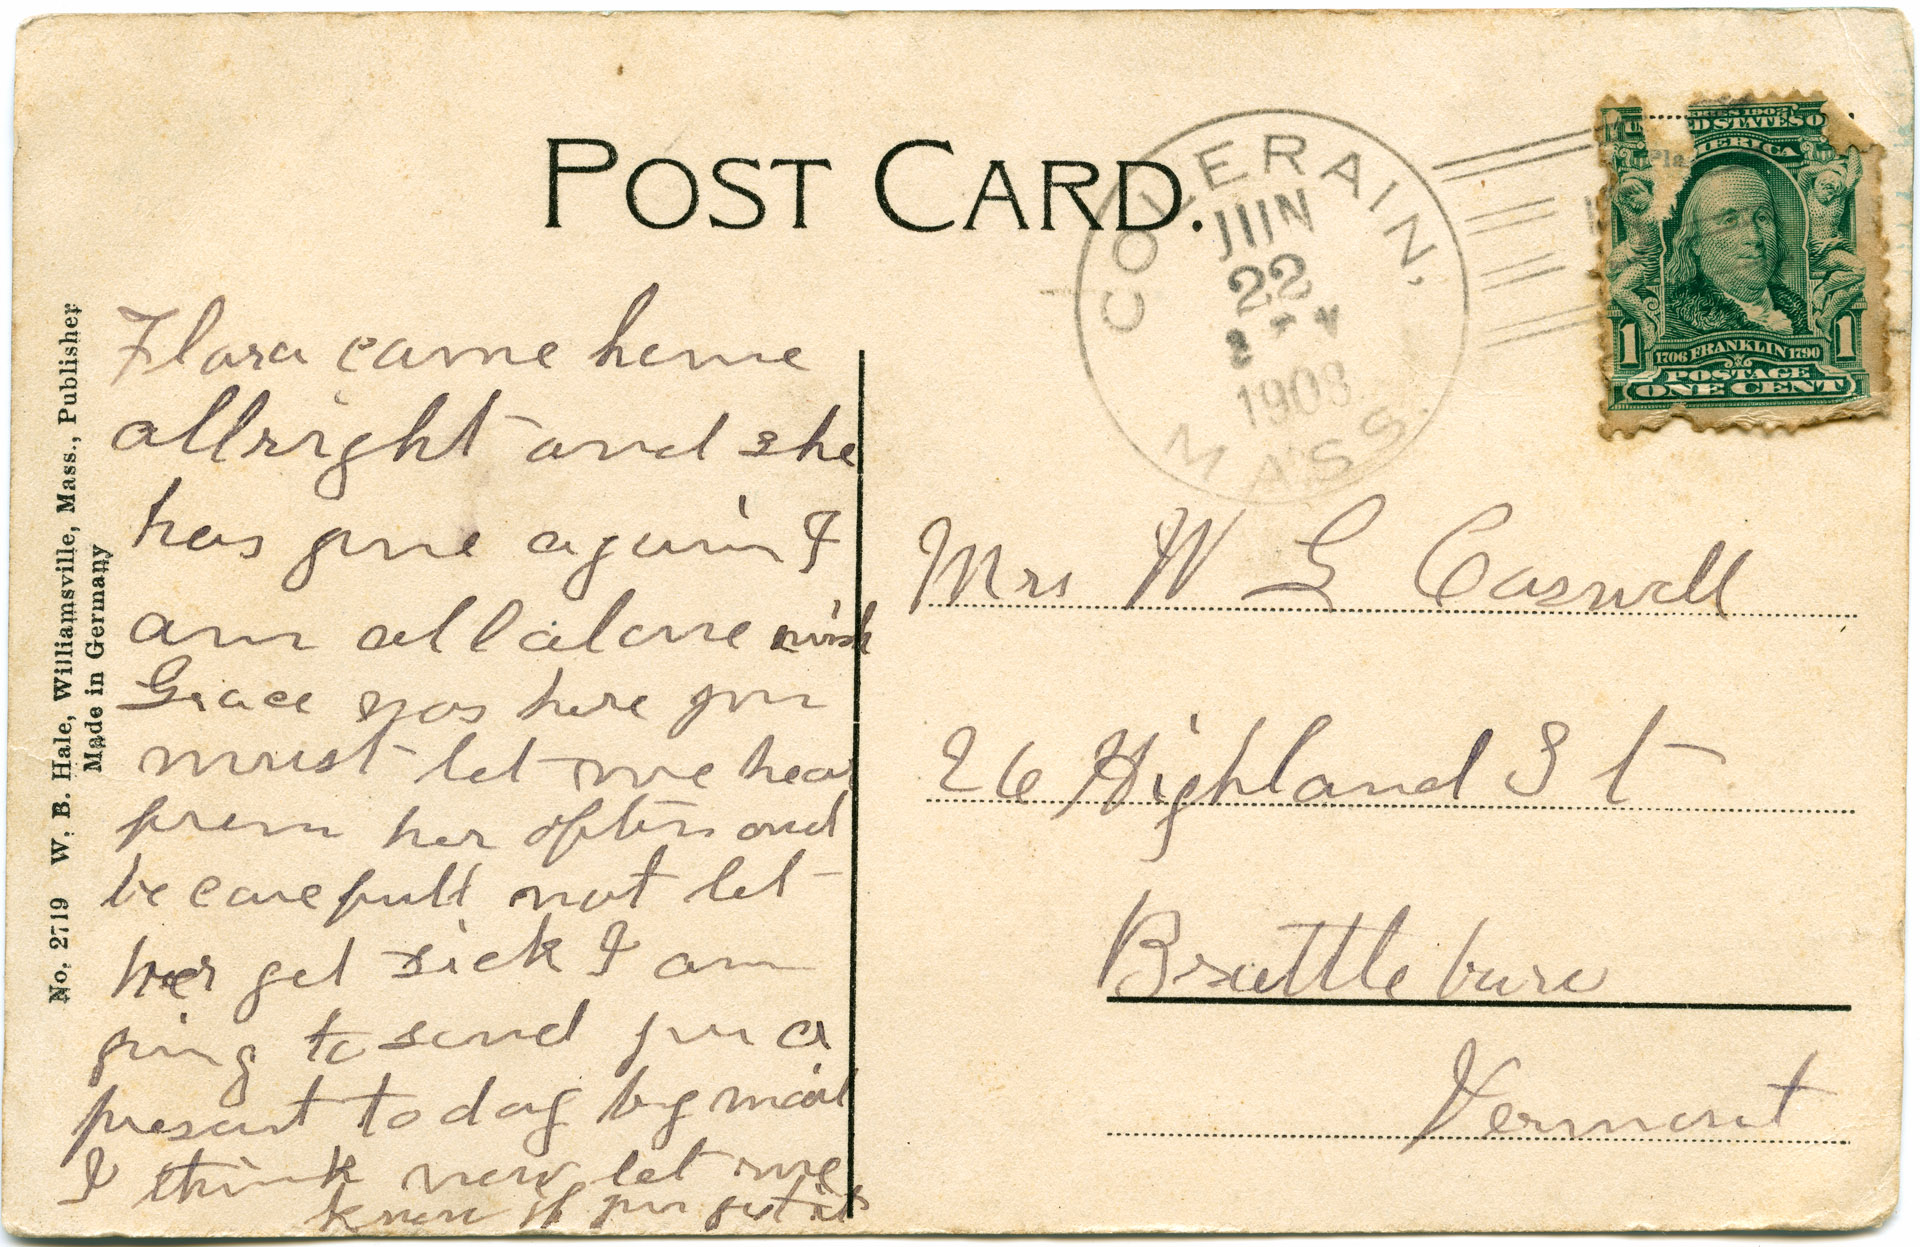 POST CARD.
COLERAIN,
JUN
22
1908
MASS.
SERIES 1902
UNITED STATES O
AMERICA
1 1
1706 FRANKLIN 1790
POSTAGE
ONE CENT
No. 2719 W. B. Hale, Williamsville, Mass., Publisher
Made in Germany
Flora came home
allright and she
has gone again I
am all alone wish
Grace was here you
must let me hear
from her often and
be carefull not let
her get sick I am
going to send you a
present today by mail
I think now let me
know if you get it
Mrs W L Caswell
26 Highland St
Brattleburo
Vermont